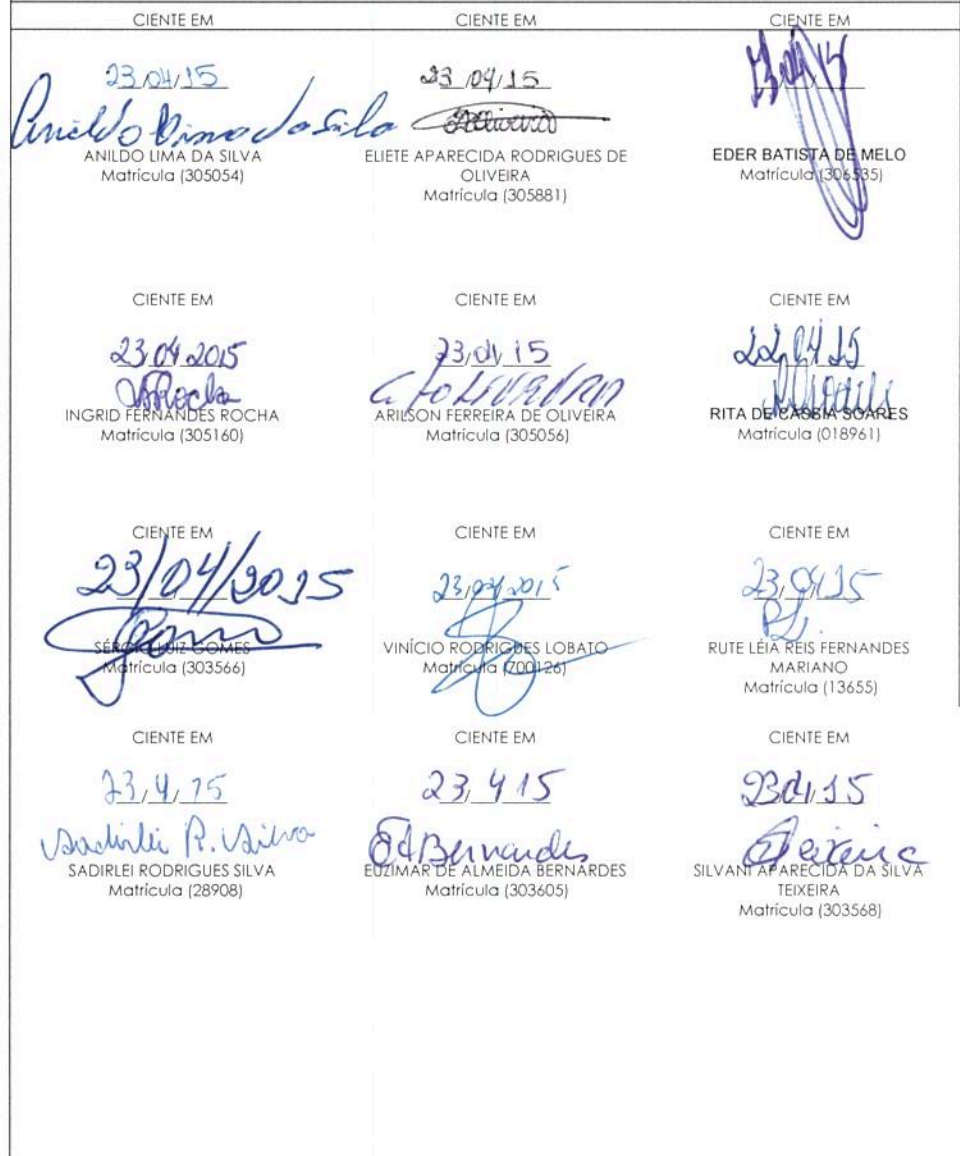 CIENTE EM
23/04/15
Anildo Lima da Silva
ANILDO LIMA DA SILVA
Matrícula (305054)
CIENTE EM
23/04/15
ELIETE APARECIDA RODRIGUES DE
OLIVEIRA
Matrícula (305881)
CIENTE EM
EDER BATISTA DE MELO
Matrícula (306535)
CIENTE EM
23/04/2015
INGRID FERNANDES ROCHA
Matrícula (305160)
CIENTE EM
23/04/15
ARILSON FERREIRA DE OLIVEIRA
Matrícula (305056)
CIENTE EM
22/04/15
RITA DE CÁSSIA SOARES
Matrícula (018961)
CIENTE EM
23/04/2015
SÉRGIO LUIZ GOMES
Matrícula (303566)
CIENTE EM
23/04/2015
VINÍCIO RODRIGUES LOBATO
Matrícula (700126)
CIENTE EM
23/04/15
RUTE LÉIA REIS FERNANDES
MARIANO
Matrícula (13655)
CIENTE EM
23/4/15
Sadirlei R. Silva
SADIRLEI RODRIGUES SILVA
Matrícula (28908)
CIENTE EM
23/4/15
EABernardes
EUZIMAR DE ALMEIDA BERNARDES
Matrícula (303605)
CIENTE EM
23/04/15
Teixeira
SILVANI APARECIDA DA SILVA
TEIXEIRA
Matrícula (303568)